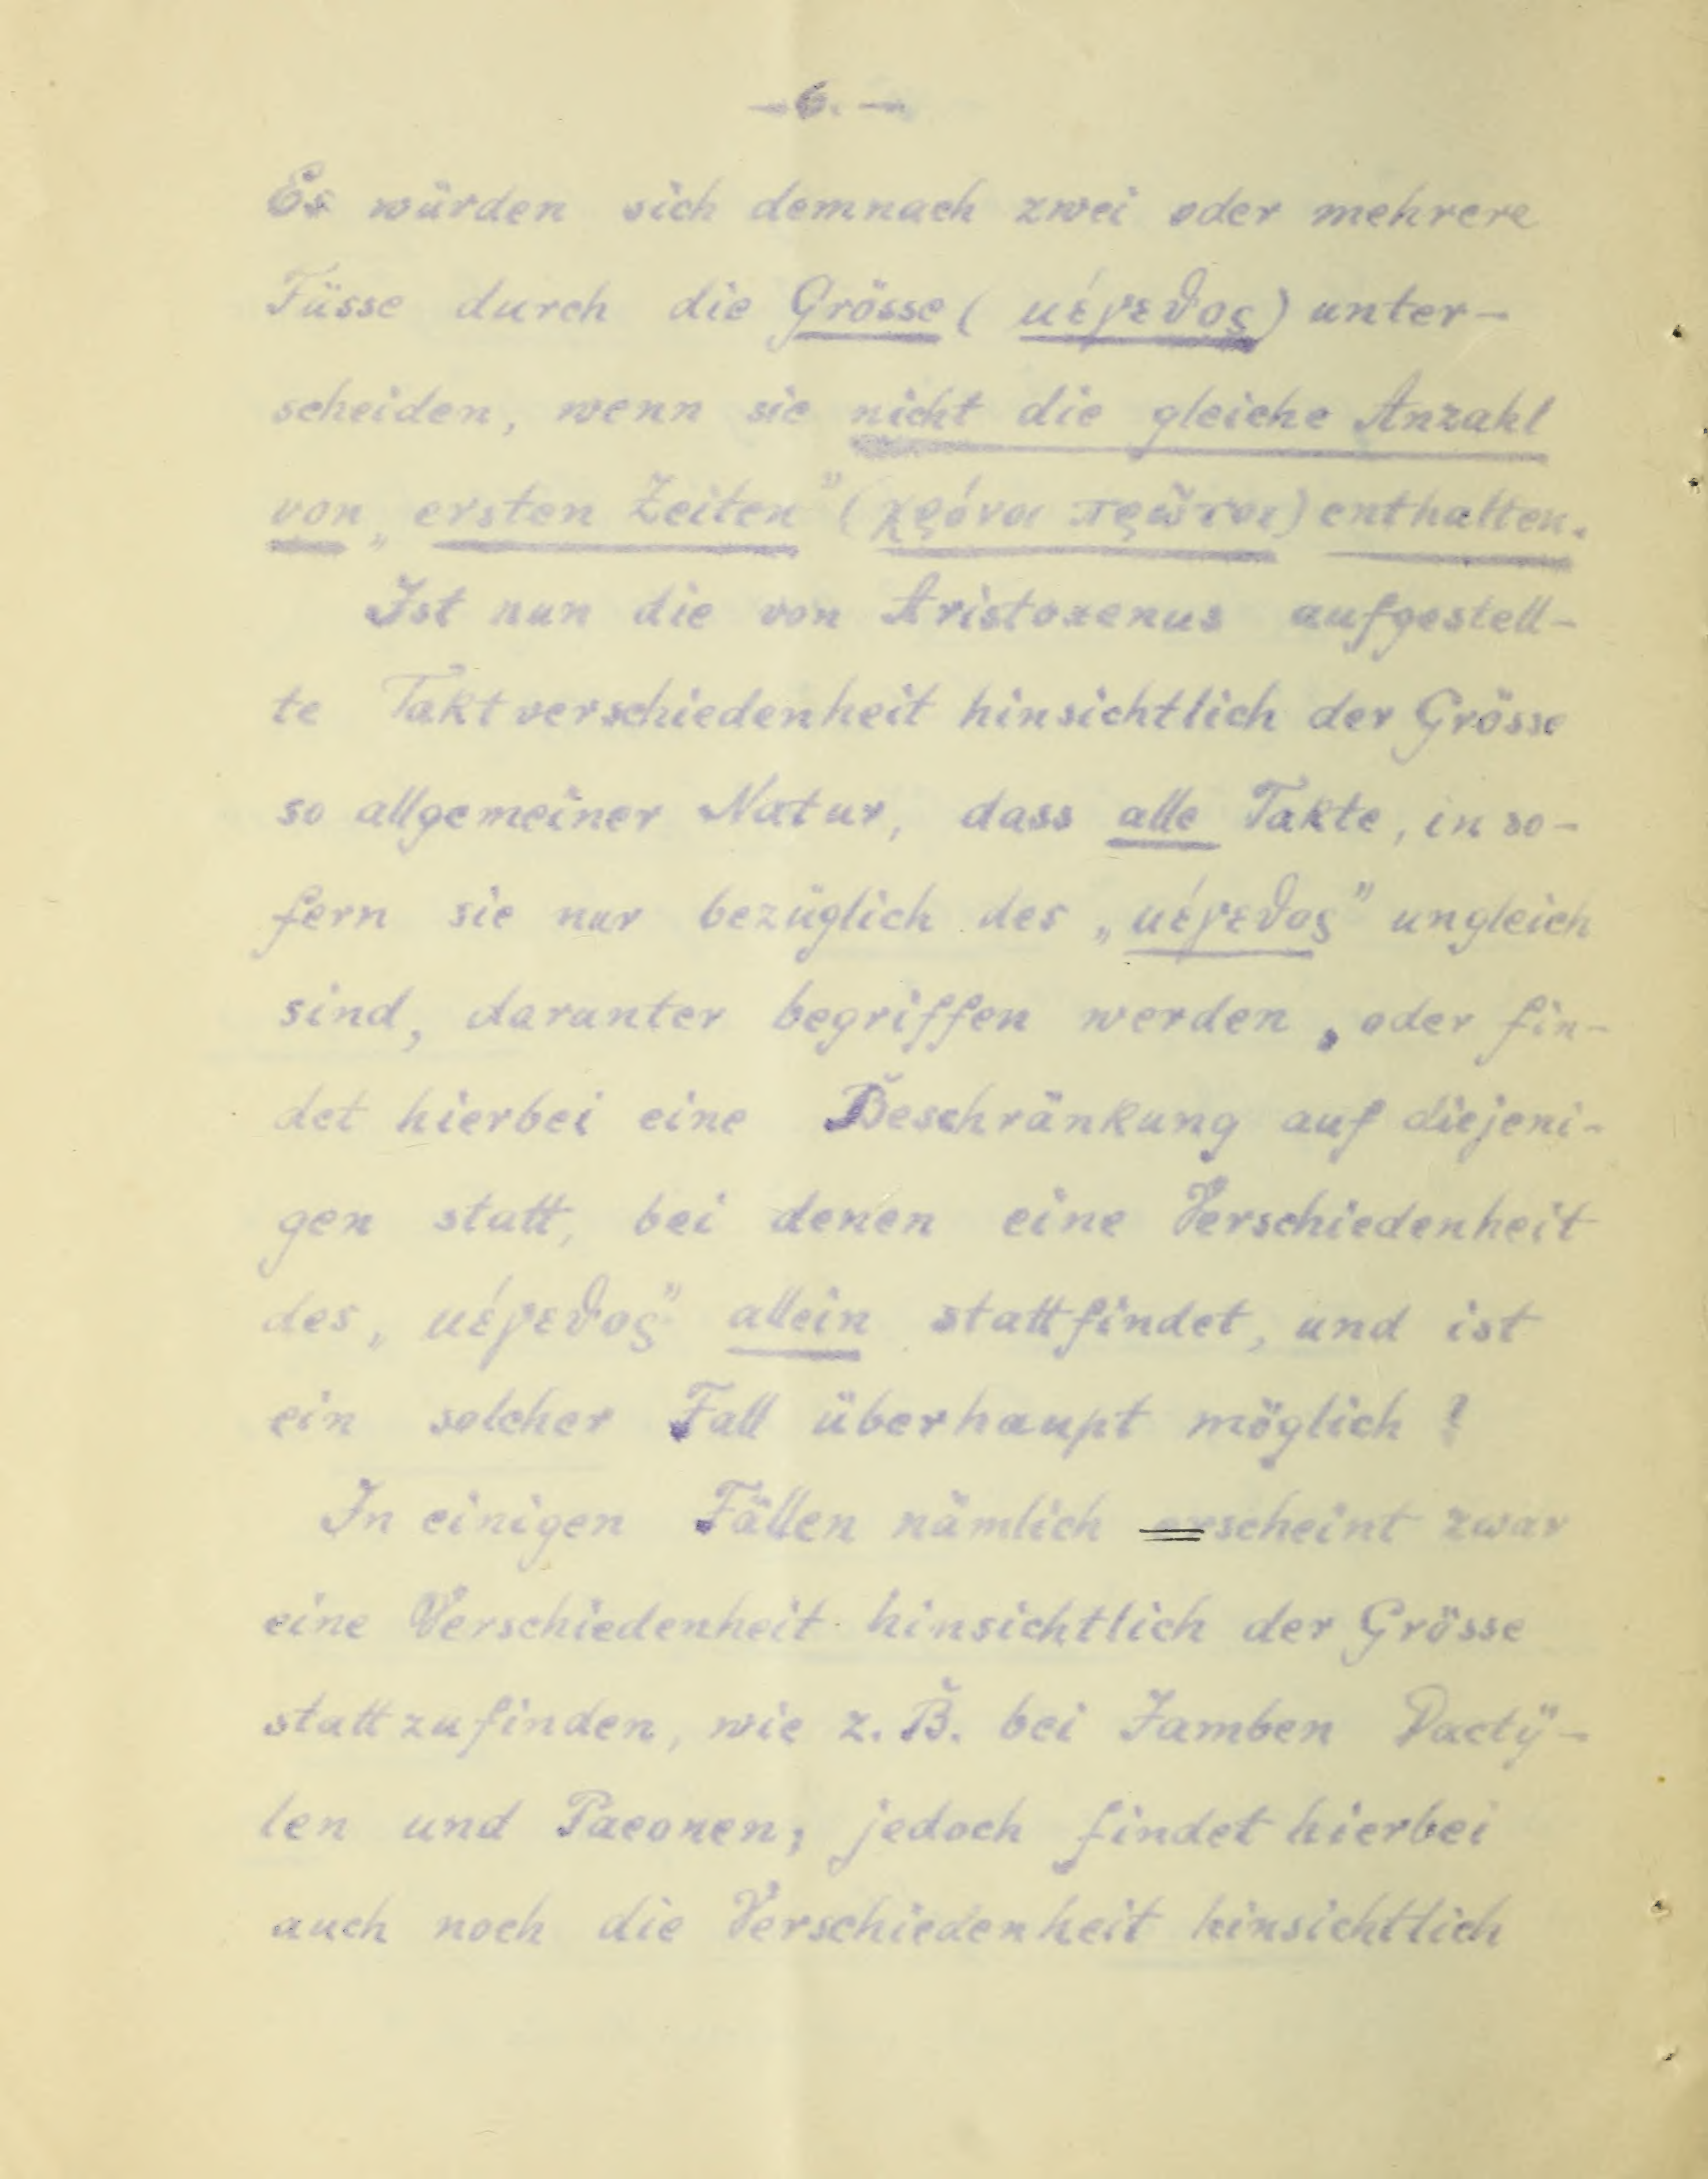 — 6. —
Es würden sich demnach zwei oder mehrere
Füsse durch die Grösse ( μέγεθος) unter-
scheiden, wenn sie nicht die gleiche Anzahl
von „ersten Zeiten” (χρόνοι πρῶτοι) enthalten.
Ist nun die von Aristoxenus aufgestell-
te Taktverschiedenheit hinsichtlich der Grösse
so allgemeiner Natur, dass alle Takte, inso-
fern sie nur bezüglich des „μέγεθος” ungleich
sind, darunter begriffen werden, oder fin-
det hierbei eine Beschränkung auf diejeni-
gen statt, bei denen eine Verschiedenheit
des „μέγεθος” allein stattfindet, und ist
ein solcher Fall überhaupt möglich ?
In einigen Fällen nämlich erscheint zwar
eine Verschiedenheit hinsichtlich der Grösse
stattzufinden, wie z. B. bei Jamben Dactÿ-
len und Paeonen; jedoch findet hierbei
auch noch die Verschiedenheit hinsichtlich